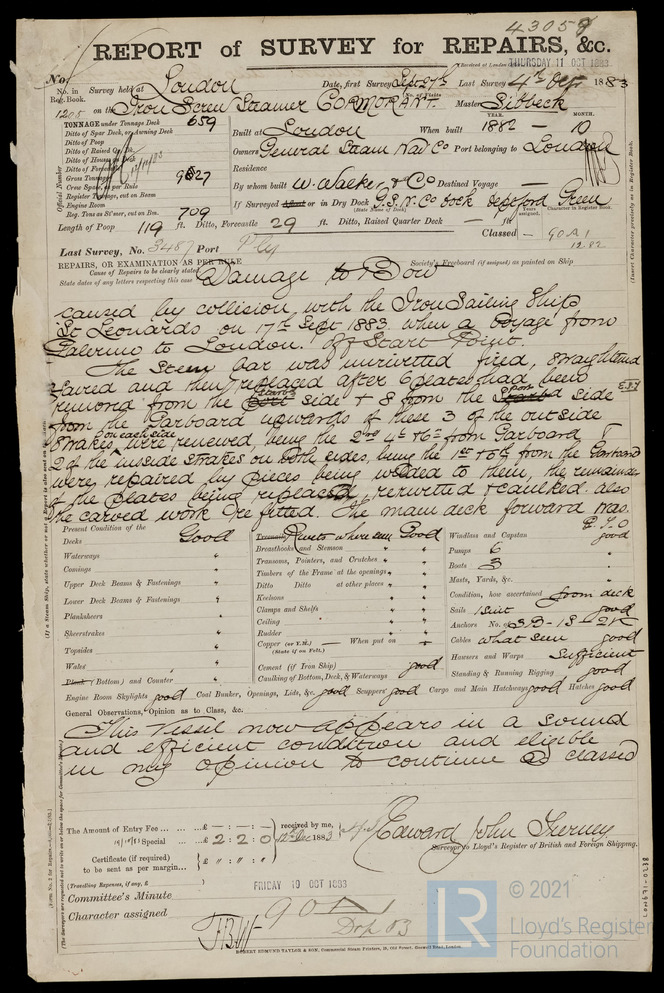 43059
REPORT of SURVEY for REPAIRS, &c.
Received at London THURSDAY 11 OCT 1883
No.
No. in Reg. Book. Survey held at London Date, first Survey Sept 27th Last Survey 4th Oct 1883
1205 on the Iron Screw Steamer CORMORANT Master Sibbeck
TONNAGE under Tonnage Deck 659
Ditto of Spar Deck, or Awning Deck
Ditto of Poop
Ditto of Raised Qr. Dk.
Ditto of House
Ditto of Forecastle
Gross Tonnage
Crew Space, as per Rule
Register Tonnage, cut on Beam
Engine Room
Reg. Tons as St'mer, cut on Bm. 709
Official Number
Built at London When built YEAR. 1882 MONTH. 10
Owners General Steam Nav Co Port belonging to London
Residence
By whom built W. Walker & Co Destined Voyage —
If Surveyed Afloat or in Dry Dock G.S.N. Co dock Deptford Green
(State Name of Dock)
Length of Poop 119 ft. Ditto, Forecastle 29 ft. Ditto, Raised Quarter Deck — ft.
Years assigned. Character in Register Book.
Classed — 90 A 1
12.82
Last Survey, No. 3487 Port Ply
Society's Freeboard (if assigned) as painted on Ship
REPAIRS, OR EXAMINATION AS PER RULE
Cause of Repairs to be clearly stated
State dates of any letters respecting this case
Damage to Bow
caused by collision, with the Iron Sailing Ship
St Leonards on 17th Sept 1883. when a voyage from
Palermo to London. Off Start Point.
The Stem bar was unrivetted fired, straightened
faired and then replaced after 6 plates had been
removed from the Starbd side & 8 from the port side E.J.T
from the Garboard upwards of these 3 of the outside
Strakes on each side were renewed, being the 2nd 4th & 6th from Garboard &
2 of the inside strakes on both sides, being the 1st & 5th from the Garboard
were repaired by pieces being welded to them, the remainder
of the plates being replaced, rerivetted & caulked. also
the carved work refitted. The main deck forward was.
P.T.O
Present Condition of the
Decks Good
Waterways "
Comings "
Upper Deck Beams & Fastenings "
Lower Deck Beams & Fastenings "
Planksheers "
Sheerstrakes "
Topsides "
Wales "
Plank (Bottom) and Counter "
Treenails Rivets where seen Good
Breasthooks and Stemson " "
Transoms, Pointers, and Crutches " "
Timbers of the Frame at the openings " "
Ditto Ditto at other places " "
Keelsons " "
Clamps and Shelfs " "
Ceiling " "
Rudder " "
Copper (or Y.M.) — When put on —
(State if on Felt.)
Cement (if Iron Ship) good
Caulking of Bottom, Deck, & Waterways good
Windlass and Capstan good
Pumps 6 "
Boats 3 "
Masts, Yards, &c. "
Condition, how ascertained from deck
Sails 1 Suit good
Anchors No. of 3.B - 1S - 2K
Cables what seen good
Hawsers and Warps Sufficient
Standing & Running Rigging good
Engine Room Skylights good Coal Bunker, Openings, Lids, &c. good Scuppers good Cargo and Main Hatchways good Hatches good
General Observations, Opinion as to Class, &c.
This Vessel now appears in a sound
and efficient condition and eligible
in my opinion to continue as classed
The Amount of Entry Fee ... £ — : — : — received by me,
Special ... £ 2 : 2 : 0 1883
Certificate (if required) to be sent as per margin... £ " : " : "
(Travelling Expenses, if any, £ )
Edward John Tierney
Surveyor to Lloyd's Register of British and Foreign Shipping.
Committee's Minute FRIDAY 19 OCT 1883
Character assigned 90 A 1
ROBERT EDMUND TAYLOR & SON, Commercial Steam Printers, 19, Old Street, Goswell Road, London.
LR © 2021
Lloyd's Register
Foundation